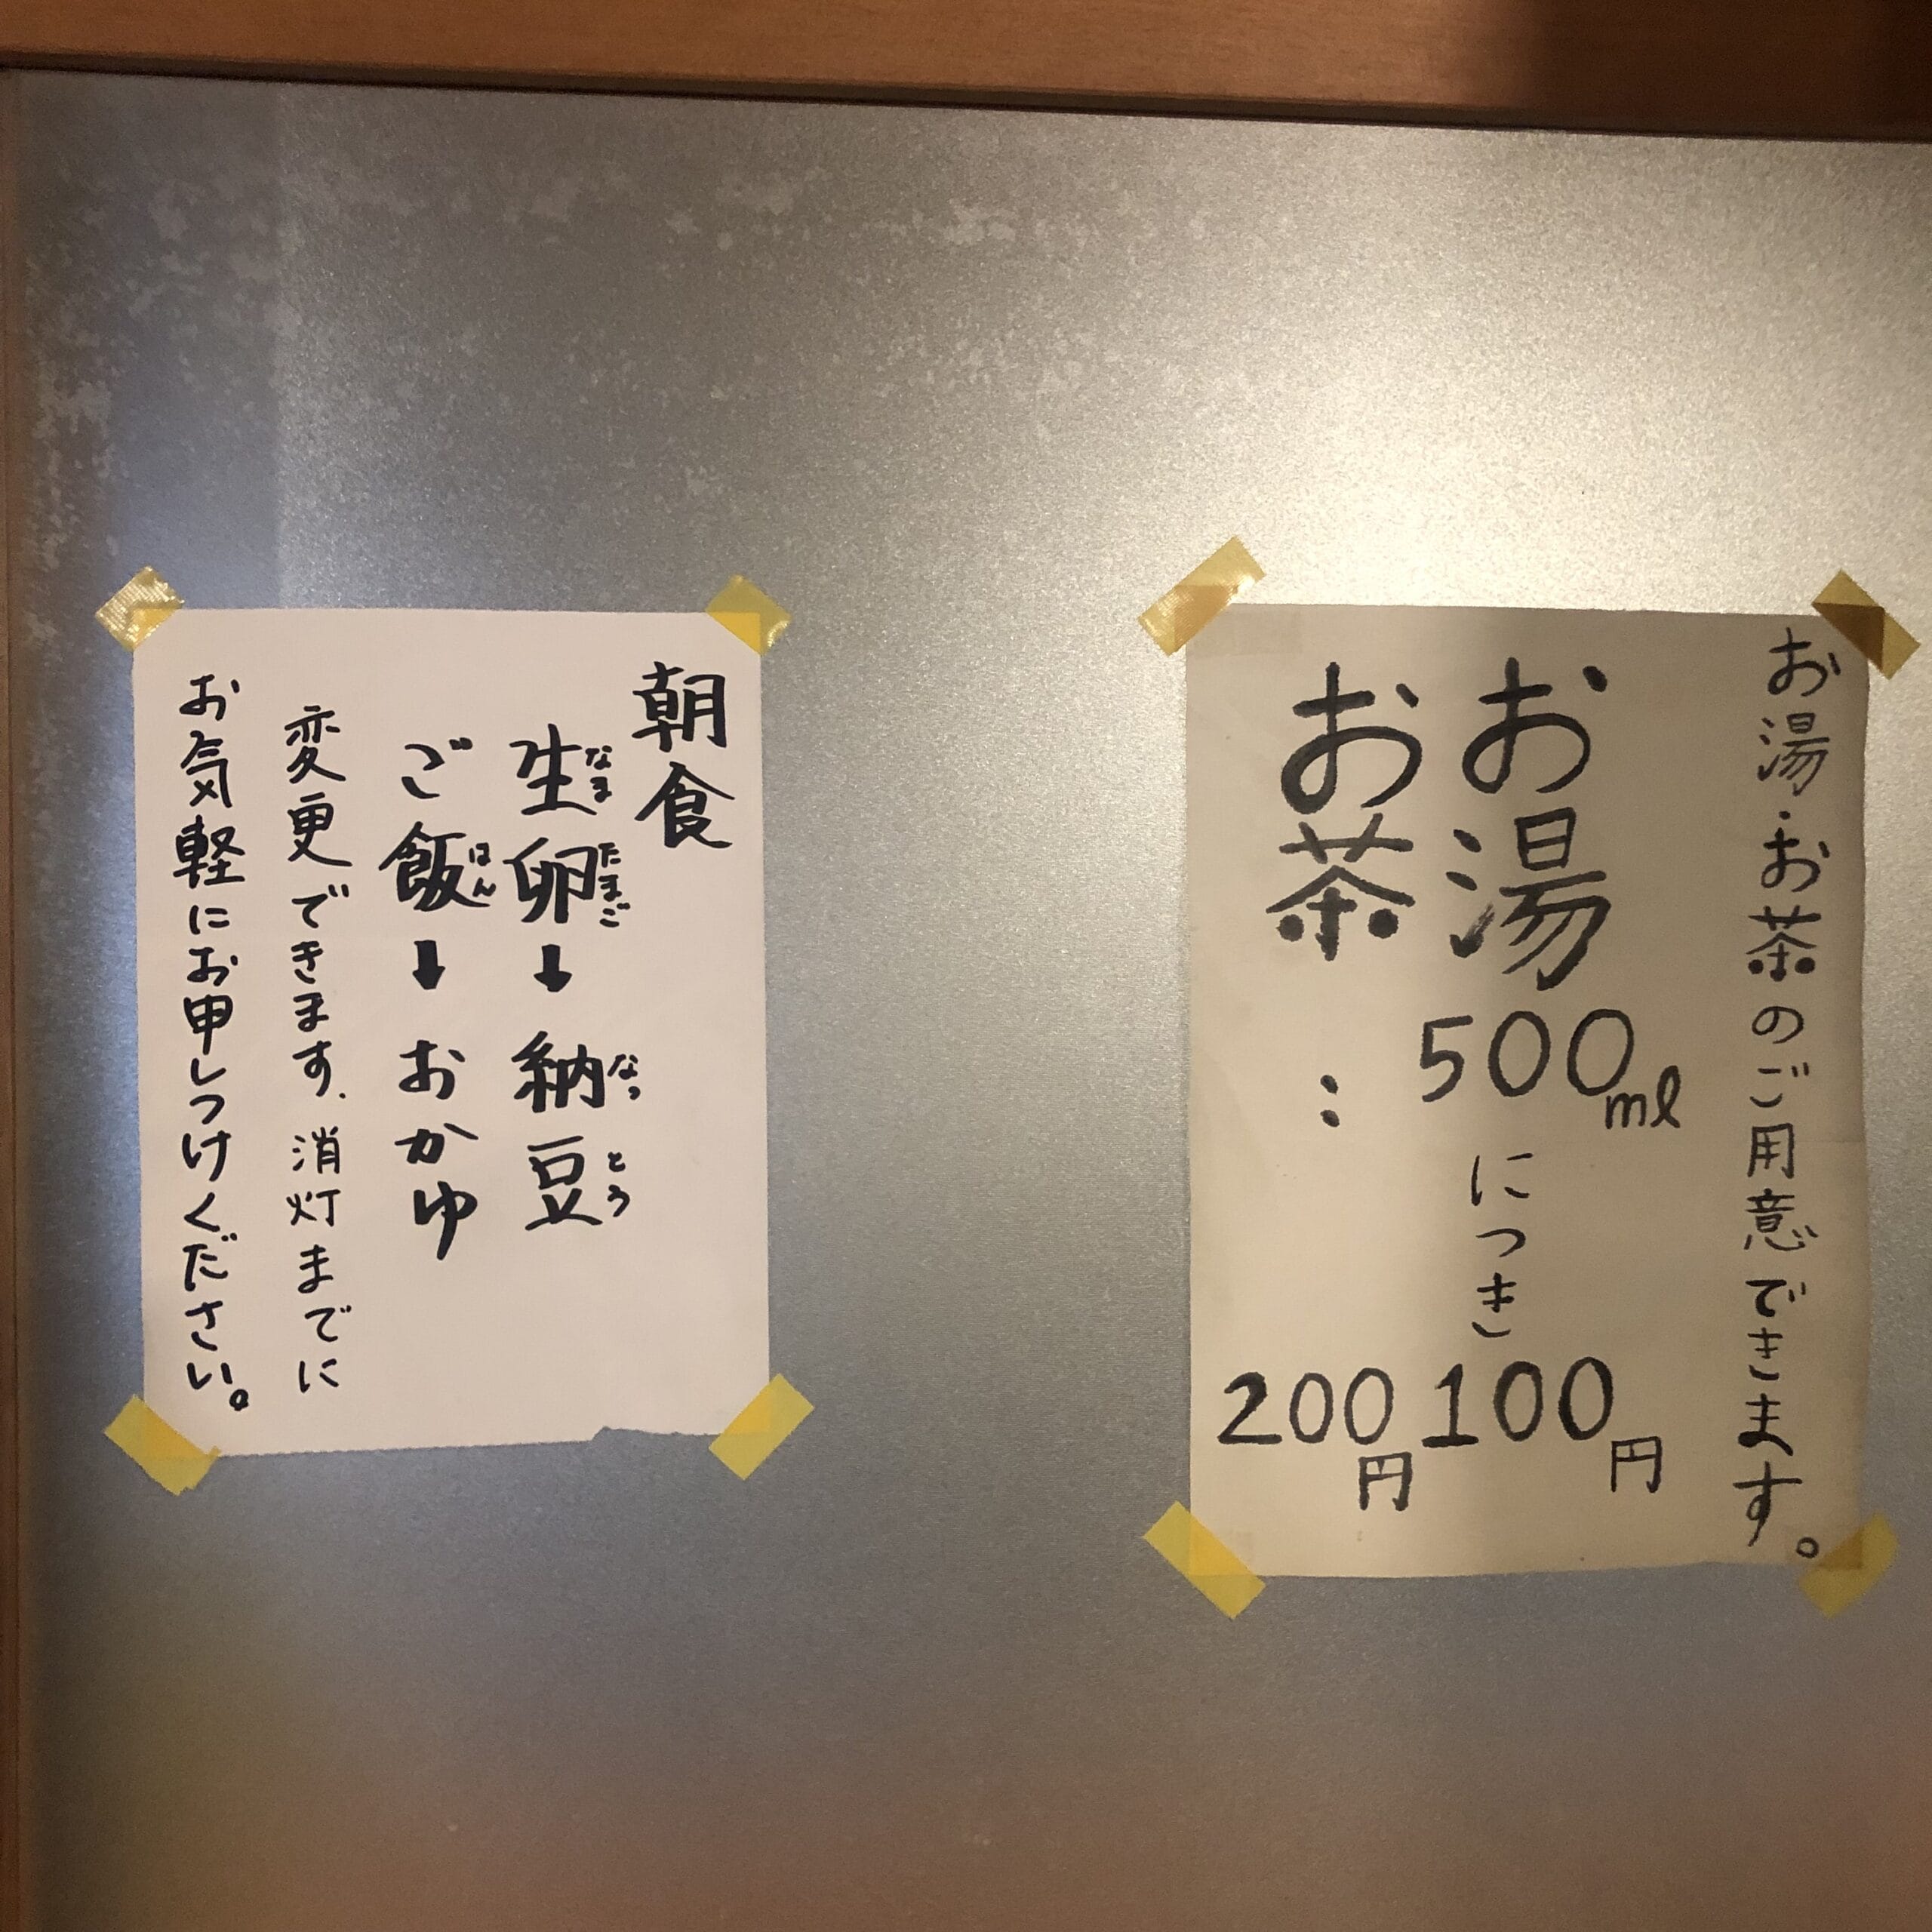 お湯・お茶のご用意できます。
お湯 500ml につき 100円
お茶 : 200円
朝食
生卵➡納豆
なまたまご なっとう
ご飯➡おかゆ
はん
変更できます、消灯までに
お気軽にお申しつけください。